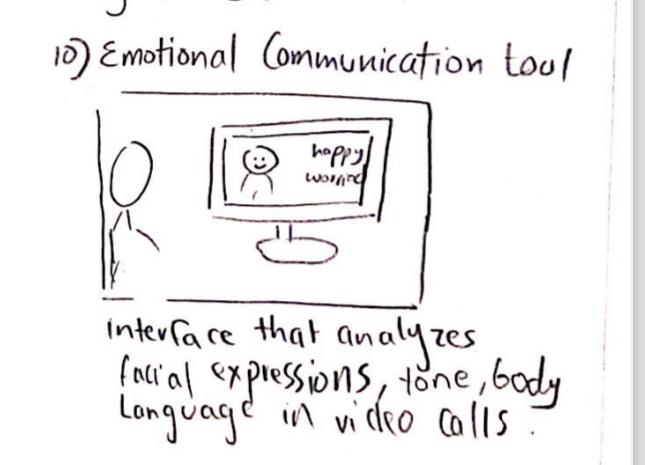 10) Emotional Communication tool
happy
worried
interface that analyzes
facial expressions, tone, body
Language in video calls.